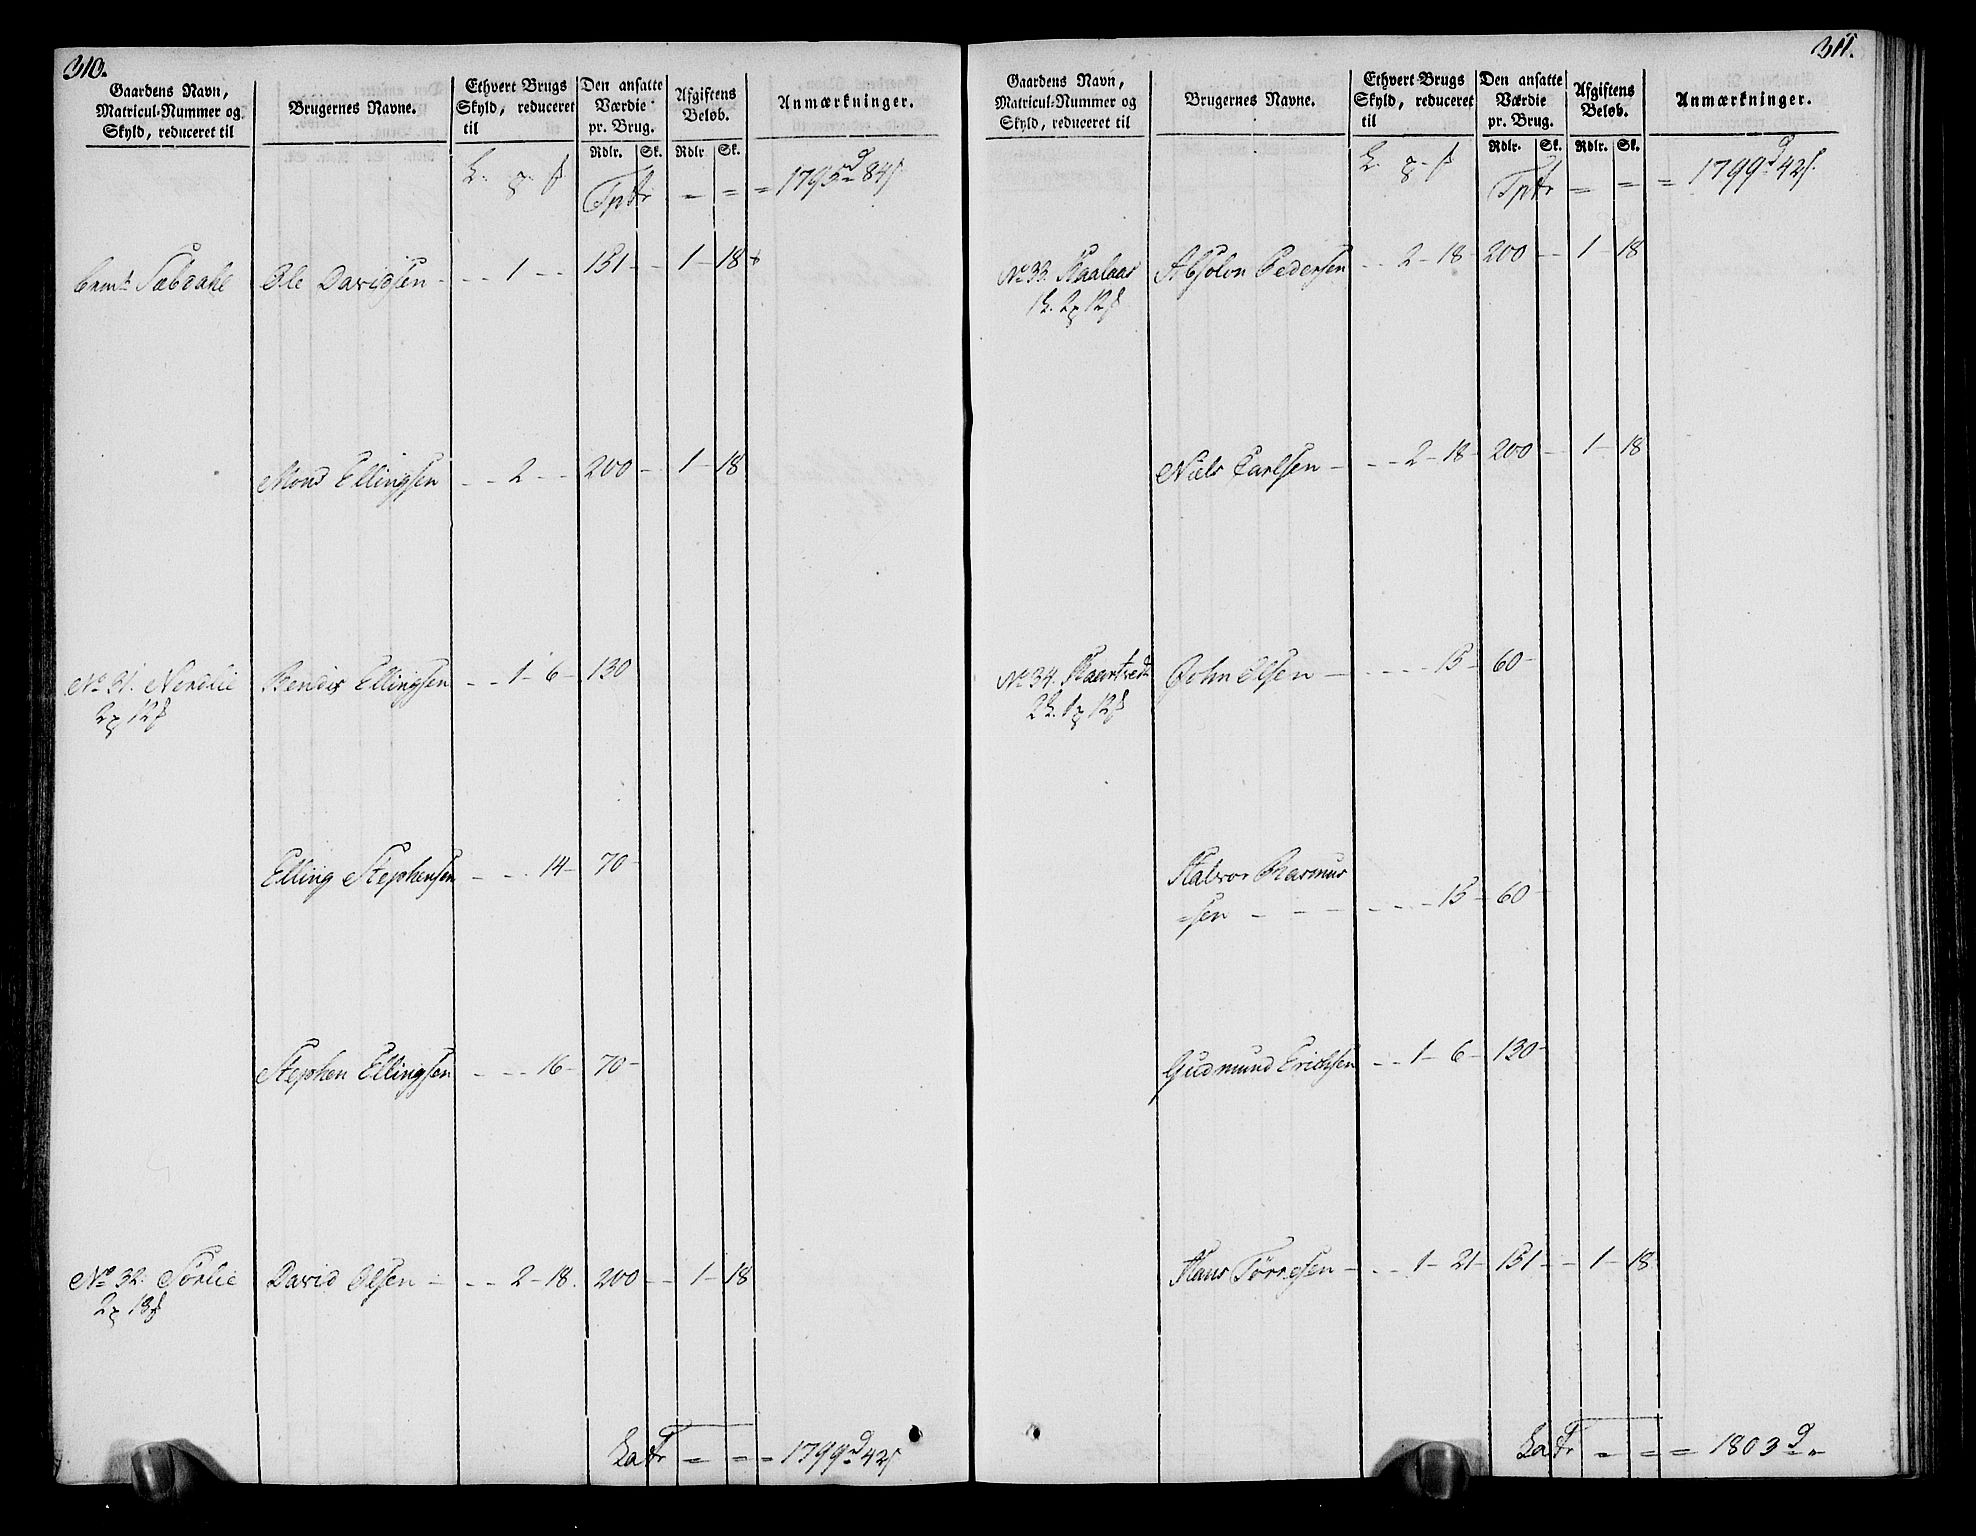 310.
Gaardens Navn, Matricul-Nummer og Skyld, reduceret til
Brugernes Navne.
Ethvert Brugs Skyld, reduceret til
Den ansatte Værdie pr. Brug.
Afgiftens Beløb.
Anmærkninger.
Rdlr. Sk. Rdlr Sk.
Tptr = = = 1795d 84s
Sæbdahl Ole Davidsen - - 1 - - 151 - - 1 - 18
Mons Ellingsen - - 2 - - 200 - - 1 - 18
No 31. Nerdlie Bendix Ellingsen - - 1 - 6 - 130
2 12
Elling Stephensen - - - 14 - 70 -
Stephen Ellingsen - - - 16 - 70 -
No 32. Sørlie David Olsen - - - 2 - 18. 200 - - 1 - 18
2 18
Latr = = = 1799d 42s
311.
Gaardens Navn, Matricul-Nummer og Skyld, reduceret til
Brugernes Navne.
Ethvert Brugs Skyld, reduceret til
Den ansatte Værdie pr. Brug.
Afgiftens Beløb.
Anmærkninger.
Rdlr. Sk. Rdlr. Sk.
Tptr = = = 1799d 42s.
No 33. Haalaas Absolon Pedersen - - 2 - 18 - 200 - - 1 - 18
1 2 12
Niels Carlsen - - - 2 - 18 - 200 - - 1 - 18
No 34. John Olsen - - - - 15 - 60 -
2 1 12
Halvor Rasmus
=sen - - - - - - 15 - 60 -
Gudmund Erichsen - - 1 - 6 - 130 -
Hans Tørresen - - - 1 - 21 - 151 - - 1 - 18
Latr = = = 1803d "